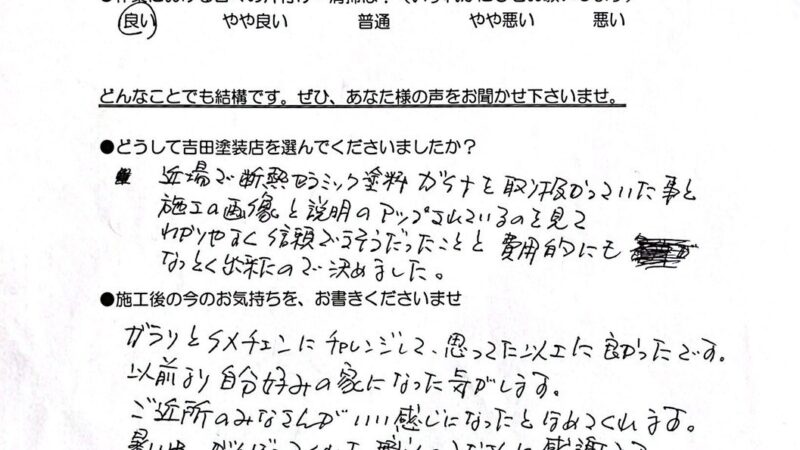 良い やや良い 普通 やや悪い 悪い
どんなことでも結構です。ぜひ、あなた様の声をお聞かせ下さいませ。
●どうして吉田塗装店を選んでくださいましたか？
近場で断熱セラミック塗料ガイナを取り扱かっていた事と
施工の画像と説明のアップされているのを見て
わかりやすく信頼できそうだったことと費用的にも
なっとく出来たので決めました。
●施工後の今のお気持ちを、お書きくださいませ
ガラリとイメチェンにチャレンジして、思ってた以上に良かったです。
以前より自分好みの家になった気がします。
ご近所のみなさんがいい感じになったとほめてくれます。